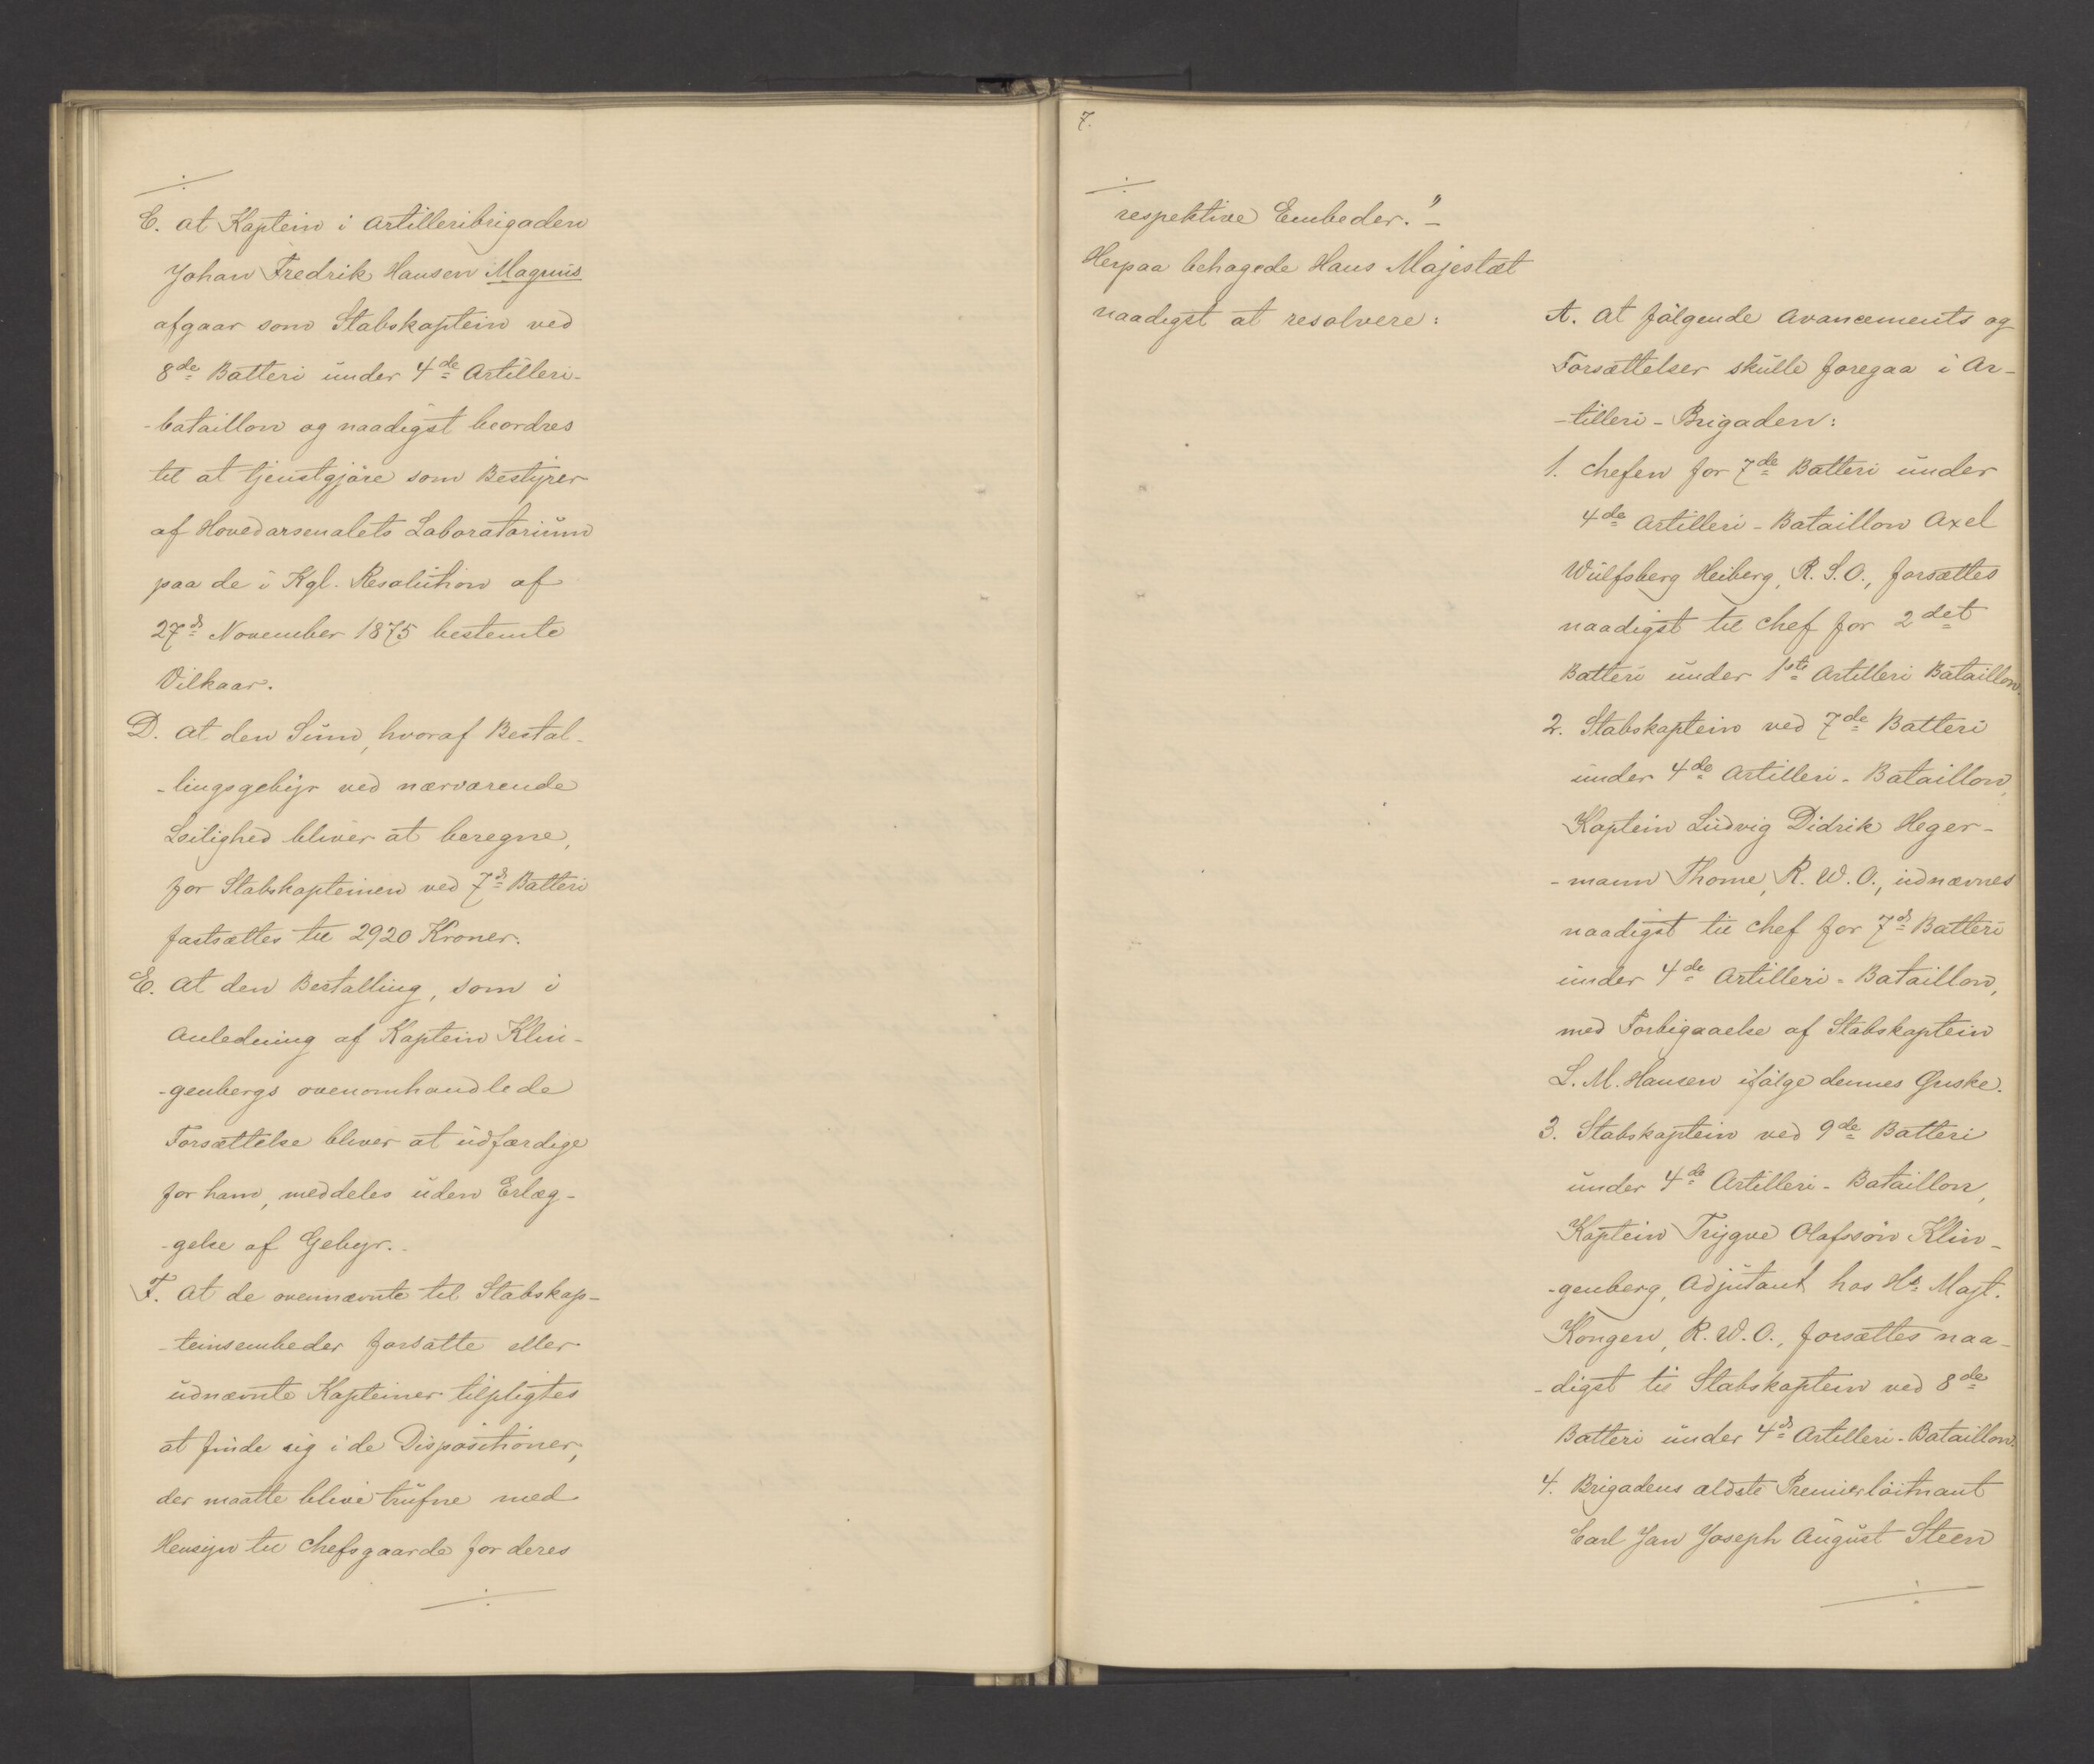 ./.
C. at Kaptein i Artilleribrigaden
Johan Fredrik Hansen Magnus
afgaar som Stabskaptein ved
8de Batteri under 4de Artilleri-
-bataillon og naadigst beordres
til at tjenstgjøre som Bestyrer
af Hovedarsenalets Laboratorium
paa de i Kgl. Resolution af
27de November 1875 bestemte
Vilkaar.
D. at den Sum, hvoraf Bestal-
-lingsgebyr ved nærværende
Leilighed bliver at beregne,
for Stabskapteinen ved 7de Batteri
fastsættes til 2920 Kroner.
E. at den Bestalling, som i
Anledning af Kaptein Klin-
-genbergs ovenomhandlede
Forsættelse bliver at udfærdige
for ham, meddeles uden Erlæg-
-gelse af Gebyr.
F. at de ovennævnte til Stabskap-
-teinsembeder forsatte eller
udnævnte Kapteiner tilpligtes
at finde sig i de Dispositioner,
der maatte blive trufne med
Hensyn til Chefsgaarde for deres
./.
7.
./.
respektive Embeder." -
Herpaa behagede Hans Majestæt
naadigst at resolvere:
A. At følgende Avancements og
Forsættelser skulle foregaa i Ar-
-tilleri-Brigaden:
1. Chefen for 7de Batteri under
4de Artilleri-Bataillon Axel
Wulfsberg Heiberg, R. S. O., forsættes
naadigst til Chef for 2det
Batteri under 1ste Artilleri Bataillon.
2. Stabskaptein ved 7de Batteri
under 4de Artilleri-Bataillon,
Kaptein Ludvig Didrik Heger-
-mann Thome, R. W. O., udnævnes
naadigst til Chef for 7de Batteri
under 4de Artilleri-Bataillon,
med Forbigaaelse af Stabskaptein
L. M. Hansen ifølge dennes Ønske.
3. Stabskaptein ved 9de Batteri
under 4de Artilleri-Bataillon,
Kaptein Trygve Olafssøn Klin-
-genberg, Adjutant hos Hs. Majt.
Kongen, R. W. O., forsættes naa-
-digst til Stabskaptein ved 8de
Batteri under 4de Artilleri-Bataillon.
4. Brigadens ældste Premierløitnant
Carl Jan Joseph August Steen
./.